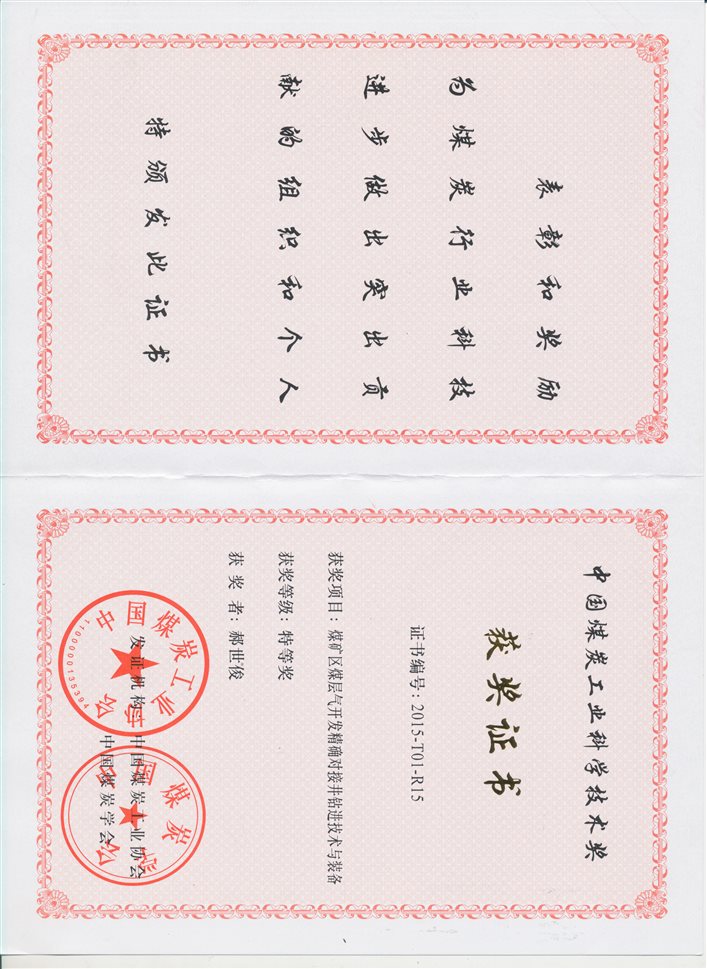 表彰和奖励
为煤炭行业科技
进步做出突出贡
献的组织和个人
特颁发此证书
中国煤炭工业科学技术奖
获奖证书
证书编号：2015-T01-R15
获奖项目：煤矿区煤层气开发精确对接井钻进技术与装备
获奖等级：特等奖
获奖者：郝世俊
发证机构 中国煤炭工业协会
中国煤炭学会
中国煤炭工业协会
1100000135394
中国煤炭学会